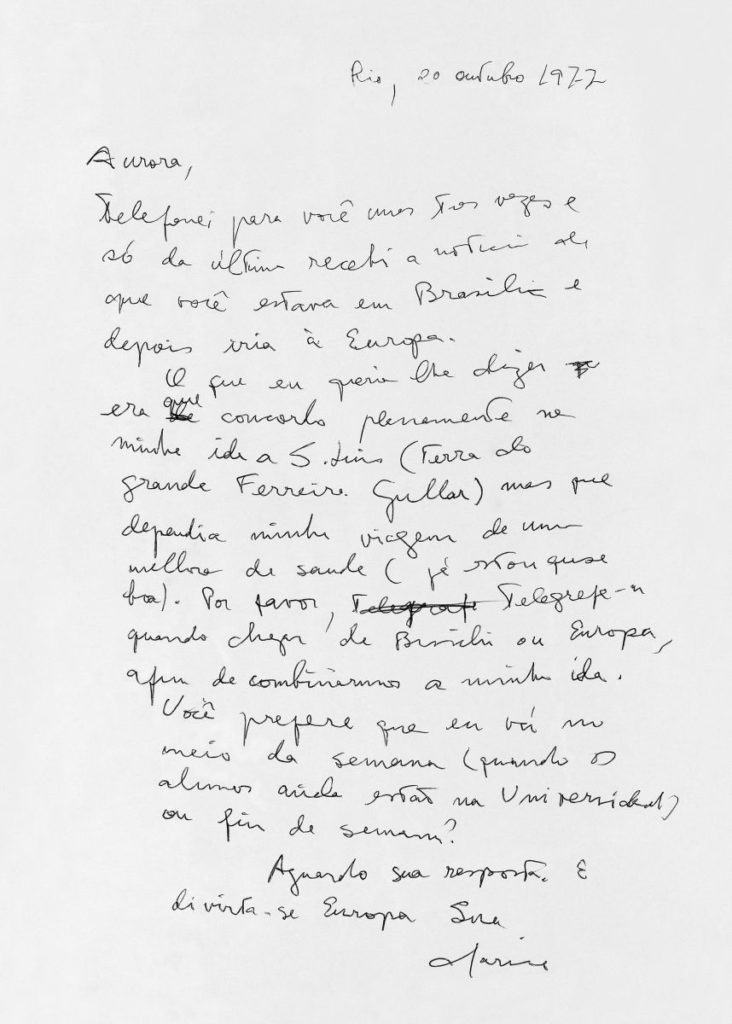 Rio, 20 outubro 1977
Aurora,
Telefonei para você umas três vezes e
só da última recebi a notícia de
que você estava em Brasília e
depois iria à Europa.
O que eu queria lhe dizer
era que concordo plenamente na
minha ida a S. Luis (Terra do
grande Ferreira Gullar) mas que
dependia minha viagem de uma
melhora de saude (já estou quase
boa). Por favor, Telegrafe-
quando chegar de Brasília ou Europa,
afim de combinarmos a minha ida.
Você prefere que eu vá no
meio da semana (quando os
alunos ainda estão na Universidade)
ou fim de semana?
Aguardo sua resposta. E
divirta-se Europa Sua